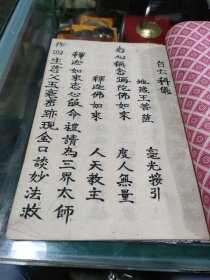 召亡科儀
地藏王菩薩　毫光接引
志心稱念彌陀佛如來　度人無量
釋迦佛如來　人天教主
釋迦如來志心皈命禮請為三界太師
作四生慈父玉毫密跡現金口談妙法救